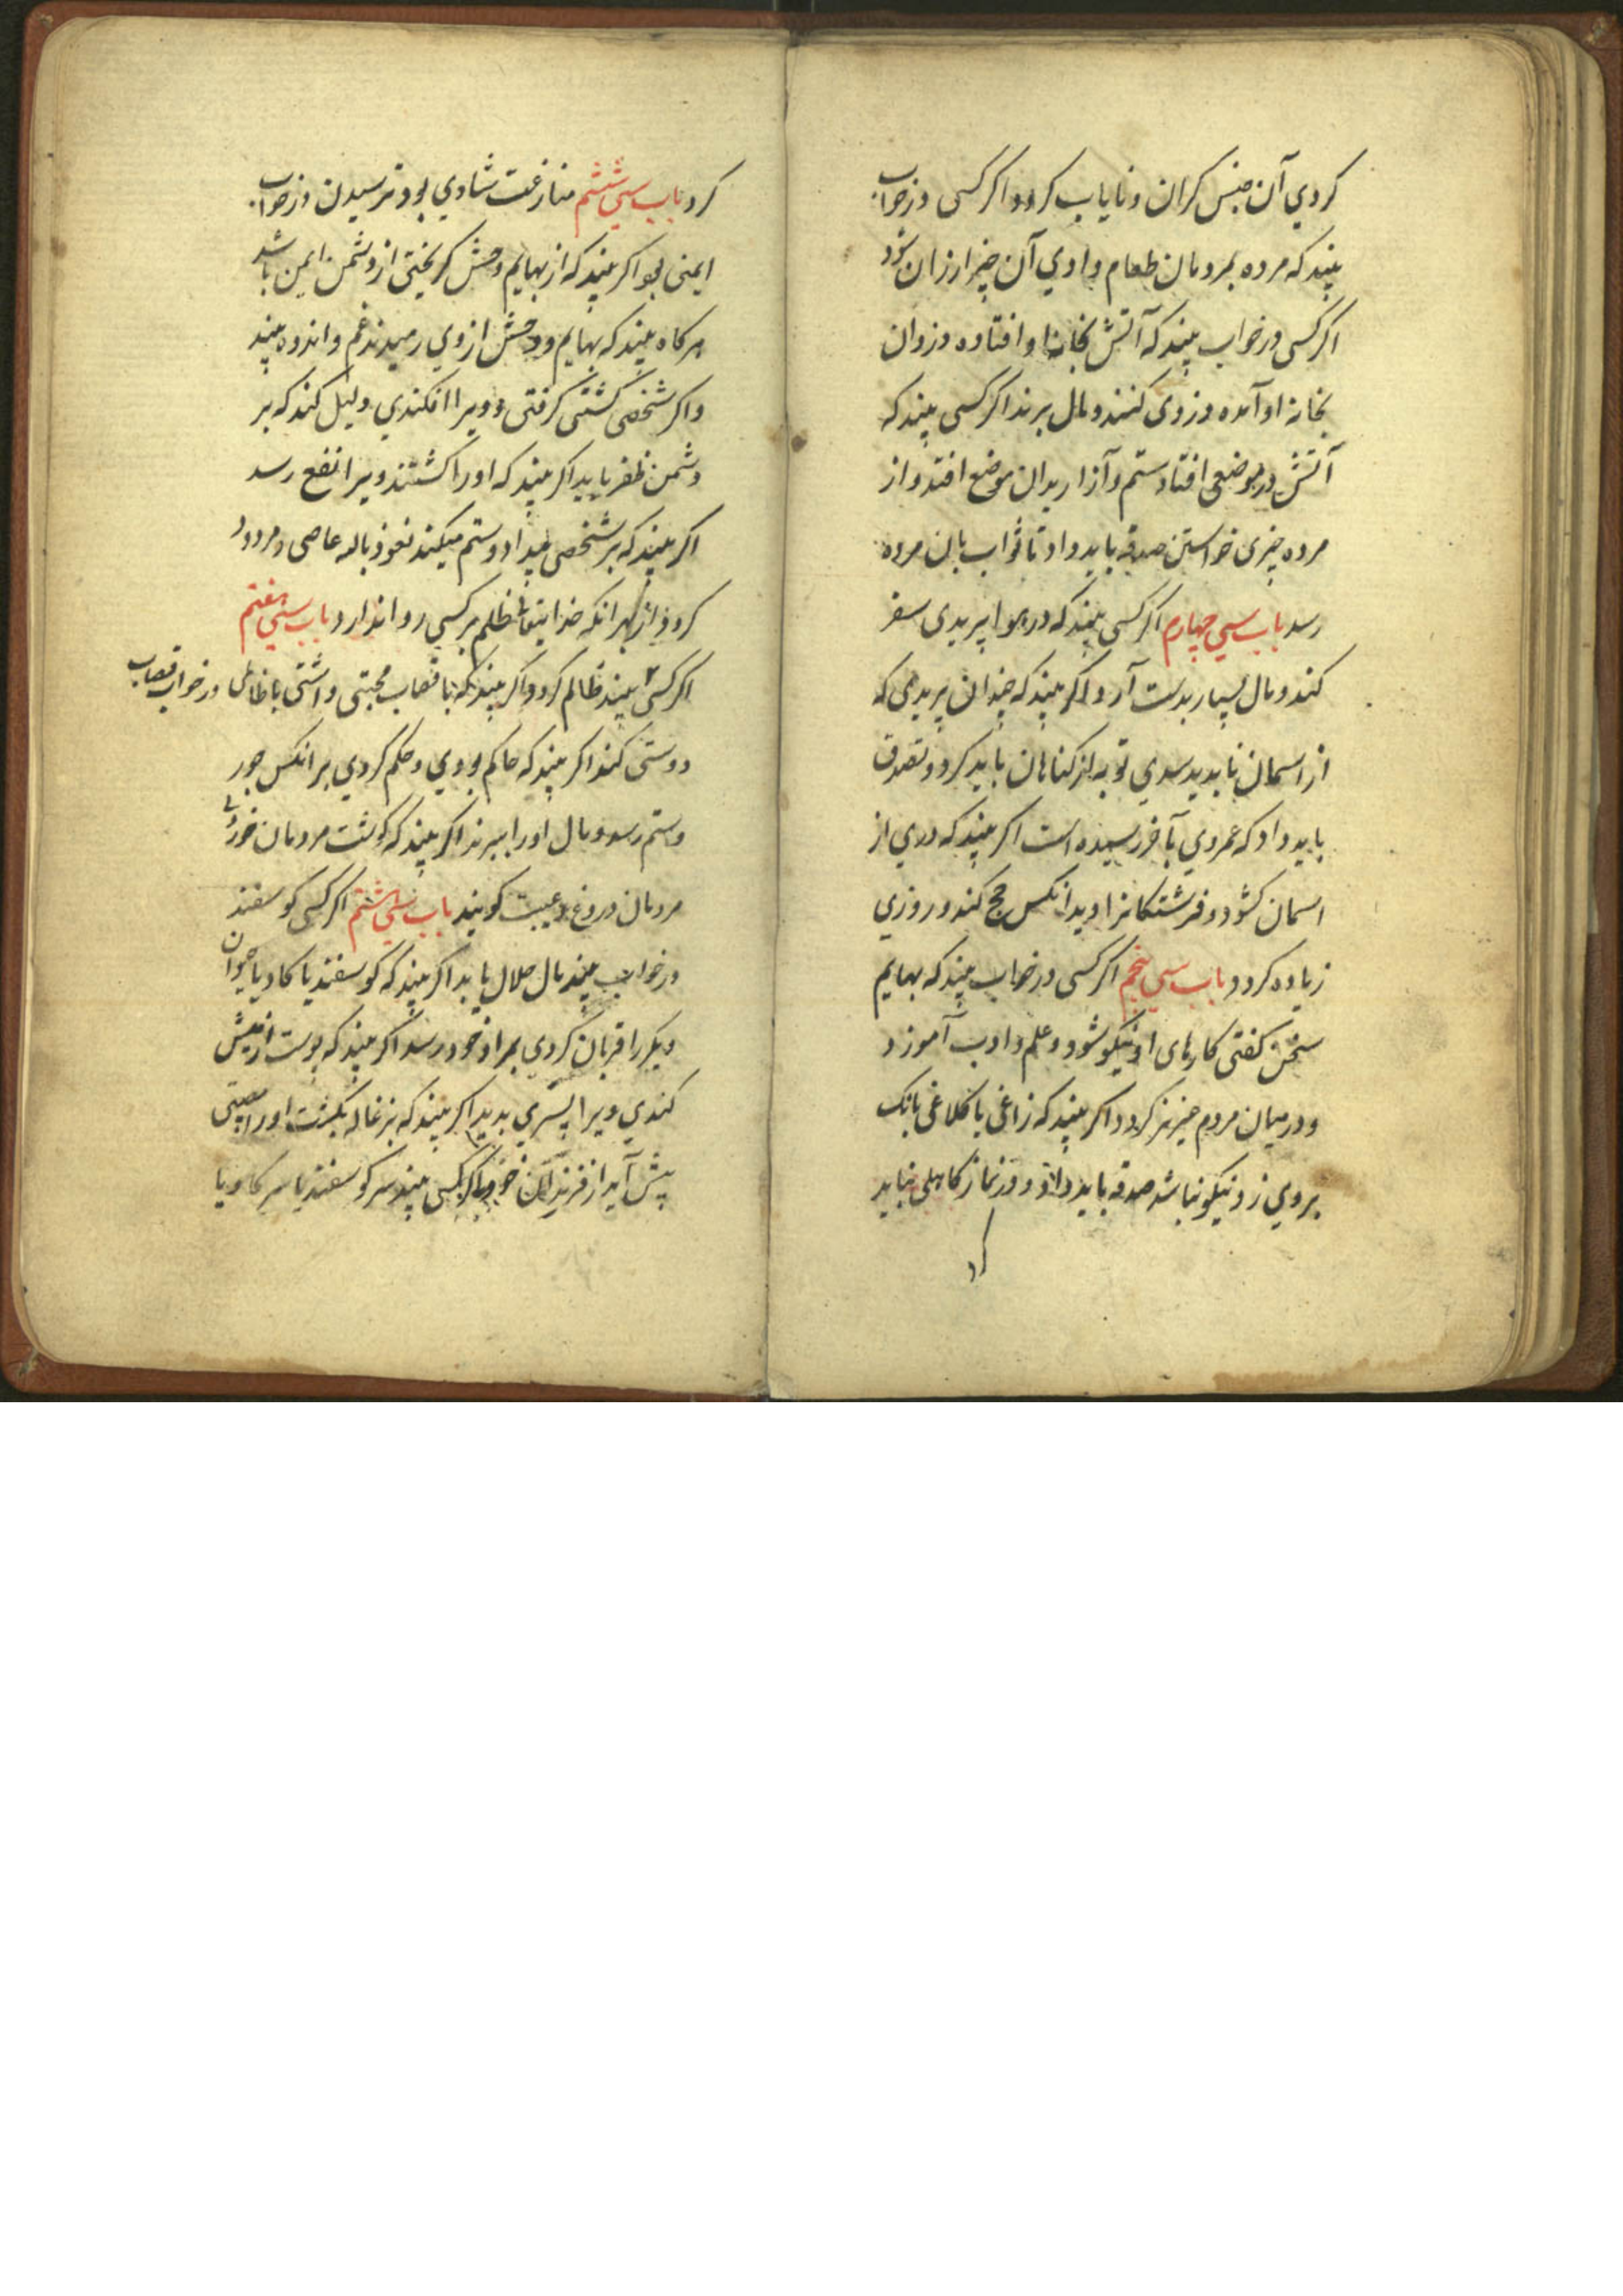 کردي آن جنس کران و نایاب کردد اکر کسی در خواب
بیند که مرده بمردمان طعام دادي آن چیز ارزان شود
اکر کسی در خواب بیند که آتش بخانه او افتاده دزدان
بخانه او آمده دزدی کنند و مال برند اکر کسی بیند که
آتش در موضعی افتاد ستم و آزار بدان موضع افتد و از
مرده چیزی خواستن صدقه باید داد تا ثواب بان مرده
رسد باب سي چهارم اکر کسی بیند که در هوا پریدی سفر
کند و مال بسیار بدست آرد و اکر بیند که چندان پریدی که
از اسمان ناپدید شدي توبه از کناهان باید کرد و تصدق
باید داد که عمر وي بآخر رسیده است اکر بیند که دري از
اسمان کشود و فرشتکانرا دید انکس حج کند و روزي
زیاده کردد باب سي پنجم اکر کسی در خواب بیند که بهایم
سخن کفتی کارهای او نیکو شود و علم و ادب آموزد
و در میان مردم عزیز کردد اکر بیند که زاغی یا کلاغی بانک
بروي زد نیکو نباشد صدقه باید داد و در نماز کاهلی نباید
کرد
کرد باب سي ششم منازعت شادي بود و ترسیدن در خواب
ایمنی بود اکر بیند که از بهایم وحش کریختی از دشمن ایمن باشد
هر کاه بیند که بهایم و وحش از وي رمیدند غم و اندوه بیند
و اکر شخصی کشتی کرفتی و ویرا افکندي دلیل کند که بر
دشمن ظفر یابد اکر بیند که اورا کشتند ویرا نفع رسد
اکر بیند که بر شخصی بیداد و ستم میکند نعوذ بالله عاصی و مردود
کردد از بهر انکه خدایتعالی ظلم بر کسي روا ندارد باب سي هفتم
اکر کسی بیند ظالم کردد و اکر بیند که با قصاب محبتی داشتی با ظالمی در خواب قصاب
دوستی کند اکر بیند که حاکم بودي و حکم کردي بر انکس جور
و ستم رسد و مال اورا ببرند اکر بیند که کوشت مردمان خوردی
مردمان دروغ و غیبت کویند باب سي هشتم اکر کسی کوسفند
در خواب بیند مال حلال یابد اکر بیند که کوسفند یا کاو یا حیوان
دیکر را قربان کردي بمراد خود رسد اکر بیند که پوست از میش
کندي ویرا پسري بدید اکر بیند که بزغاله بکشت اورا مصیبتی
پیش آید از فرزندان خود و اکر کسی بیند سر کوسفند یا سر کاو یا